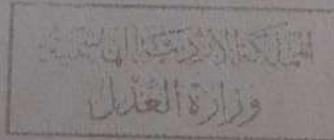 المملكة الأردنية الهاشمية
وزارة العدل